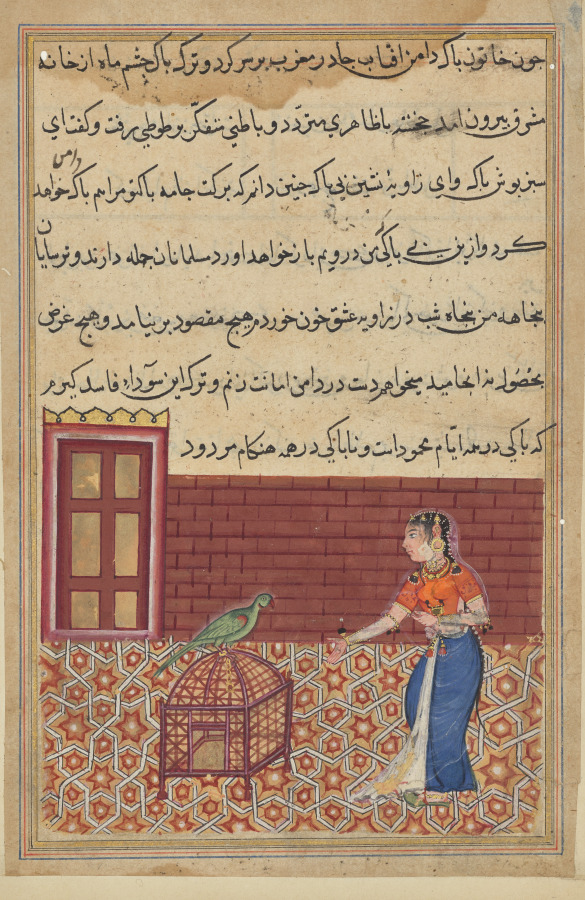 چون خاتون پاک دامن آفتاب چادر مغرب بر سر کرد و ترک پاک چشم ماه از خانه
مشرق بیرون آمد خجسته با ظاهری متردد و باطنی متفکر بر طوطی رفت و گفت ای
دامن
سبز پوش پاک وای زاویه نشین بی پاک چنین دانم که برکت جامه پاک تو مرا هم پاک خواهد
کرد و از من بی پاکی من درویم باز خواهد آورد مسلمانان چله دارند و ترسایان
پنجاهه من پنجاه شب در زاویه عشق خون خوردم هیچ مقصود بر نیامد و هیچ غرض
بحصول نه انجامید میخواهم دست در دامن امانت زنم و ترک این سودای فاسد گیرم
که پاکی در همه ایام محمود است و ناپاکی در همه هنگام مردود